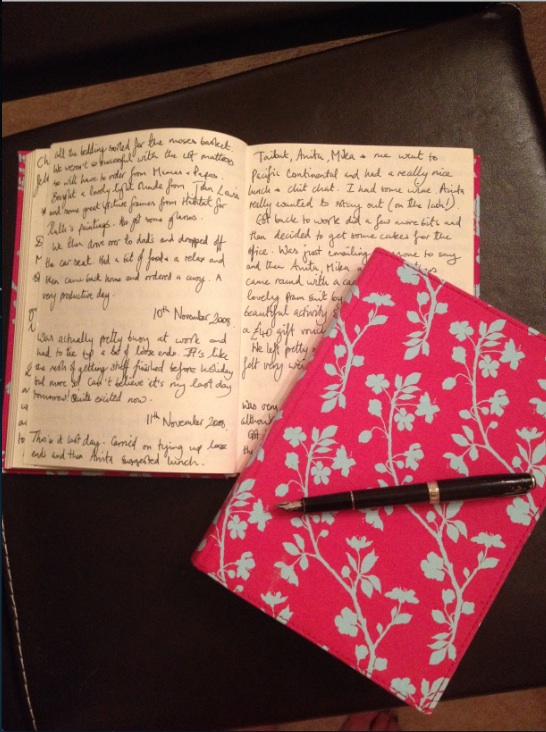 all the bedding sorted for the moses basket.
We weren't so successful with the cot mattress
so will have to order from Mamas + Papas.
Bought a lovely light shade from John Lewis
and some great picture frames from Habitat for
paintings. He got some gloves.
We then drove over to dads and dropped off
the car seat. Had a bit of food + a relax and
then came back home and ordered a curry. A
very productive day.
10th November 2008.
Was actually pretty busy at work and
had to tie up a lot of loose ends. It's like
the rush of getting stuff finished before holiday
but more so. Can't believe it's my last day
tomorrow! Quite excited now.
11th November 2008.
This is it last day. Carried on tying up loose
ends and then Anita suggested lunch.
Anita, Mika + me went to
Pacific Continental and had a really nice
lunch + chit chat. I had some wine. Anita
really wanted to string out (on the lash!)
Got back to work did a few more bits and
then decided to get some cakes for the
office. Was just emailing to say
and then Anita, Mika
came round with a ca
lovely pram suit by
beautiful activity
a £40 gift vouc
We left pretty
felt very wei
Was very
althou
Got
the